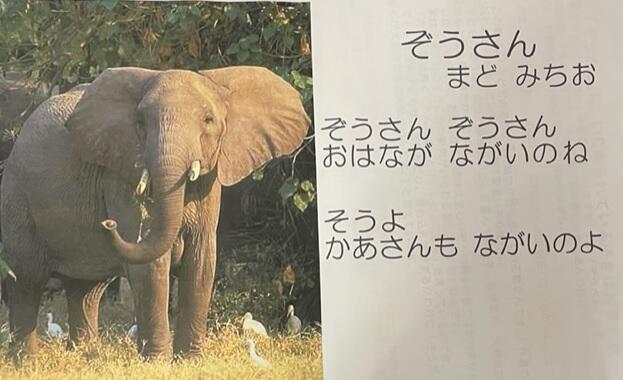 ぞうさん
まど みちお
ぞうさん ぞうさん
おはなが ながいのね
そうよ
かあさんも ながいのよ